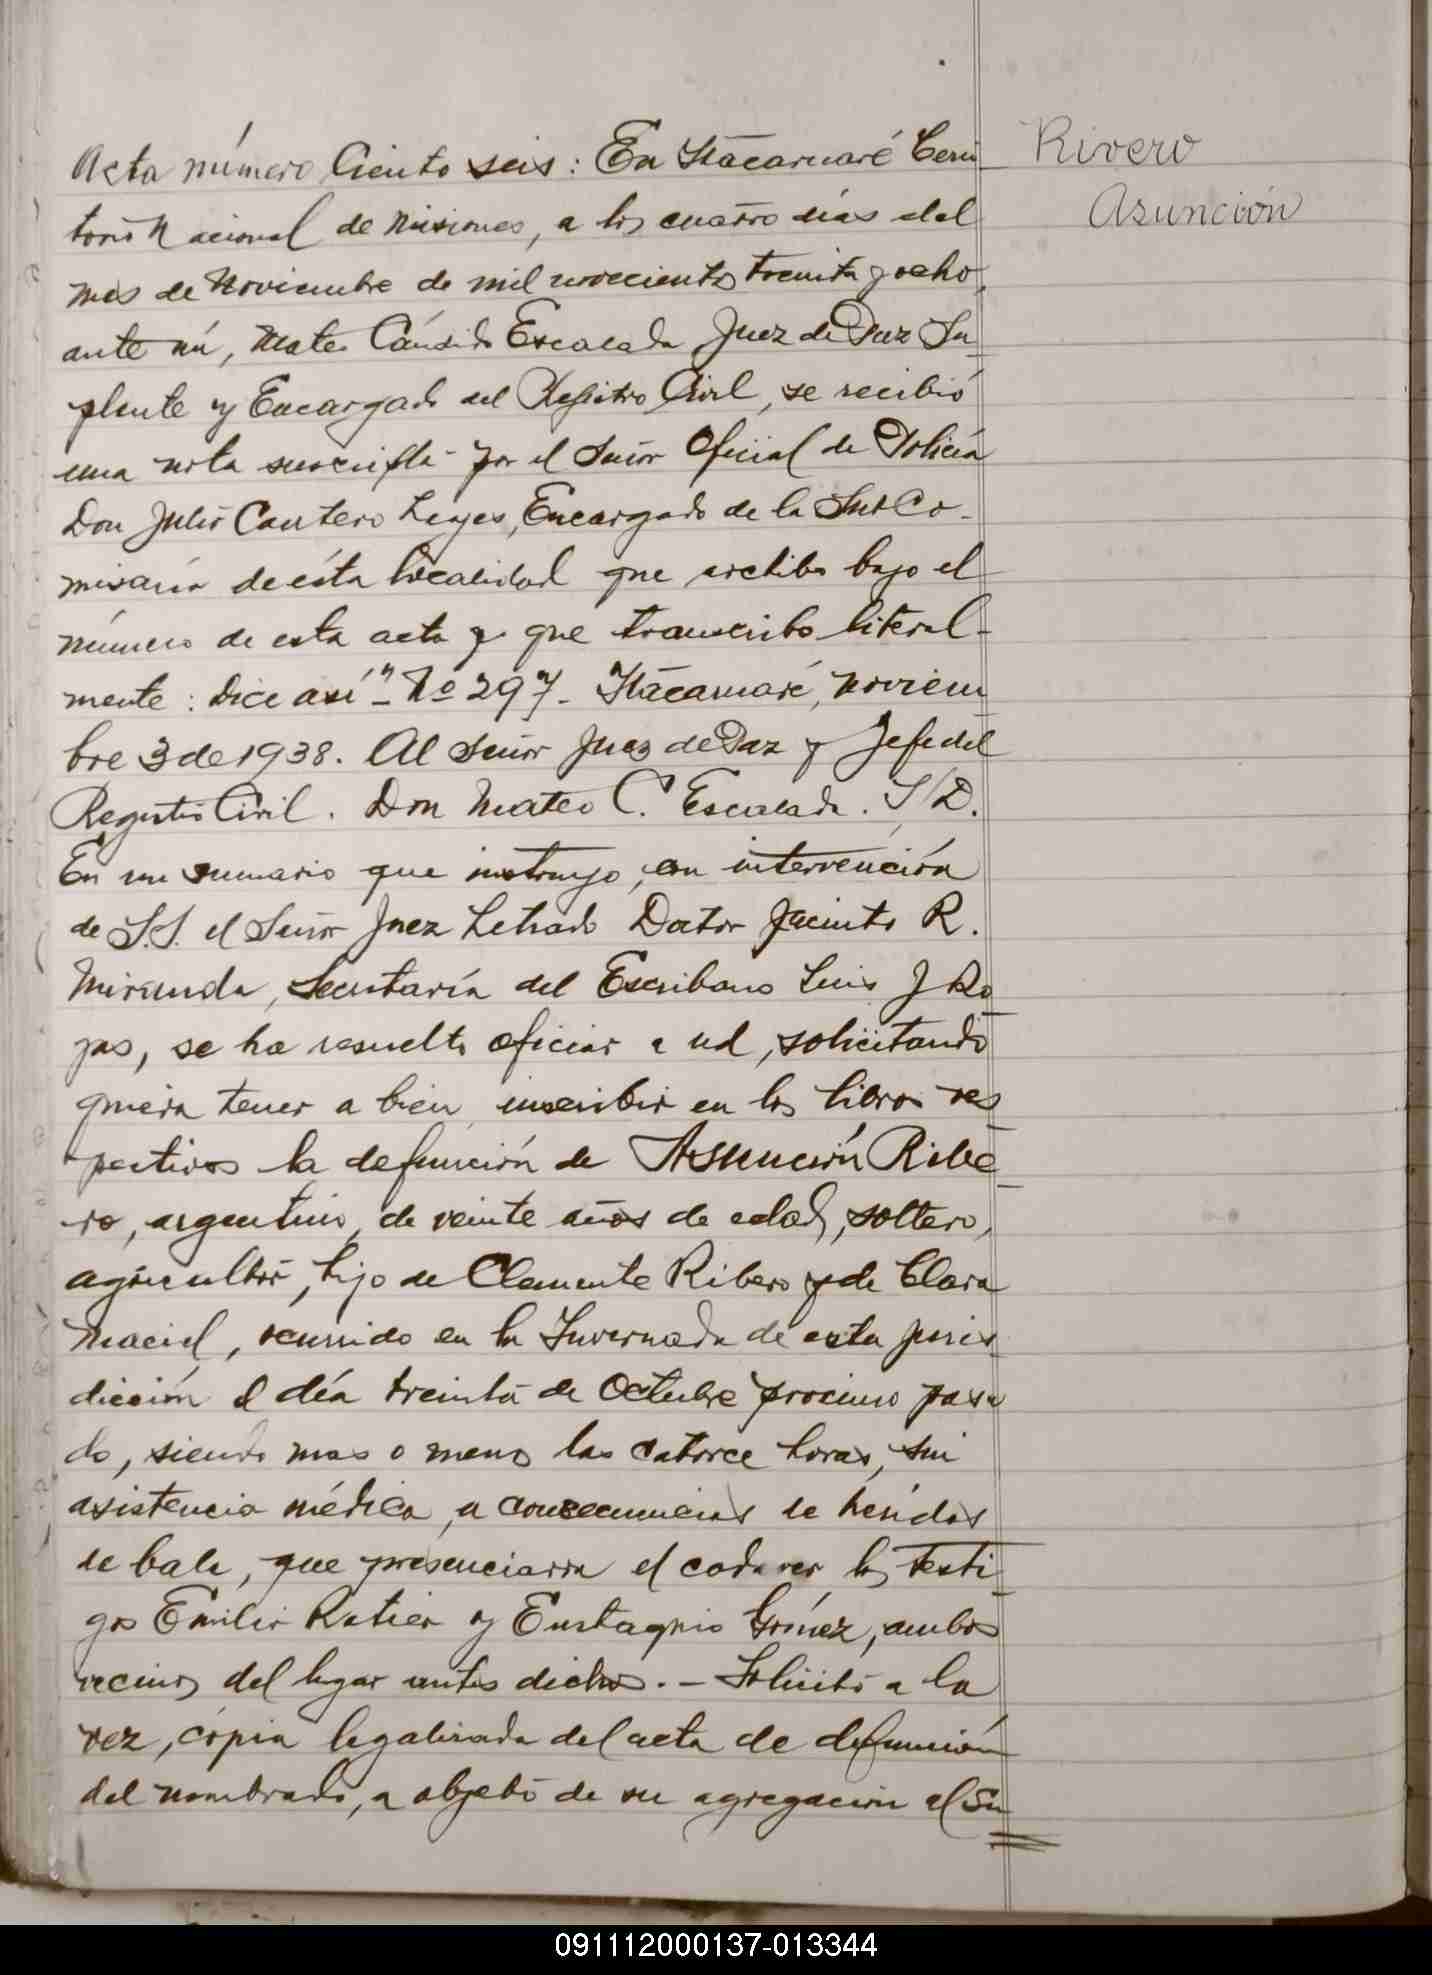 Acta número Ciento seis: En Itacaruaré Terri
torio Nacional de Misiones, a los cuatro días del
mes de Noviembre de mil novecientos treinta y ocho,
ante mí, Mateo Cándido Escalada Juez de Paz Su
plente y Encargado del Registro Civil, se recibió
una nota suscripta por el Señor Oficial de Policía
Don Julio Cantero Leyes, Encargado de la Sub Co-
misaría de ésta localidad que archibo bajo el
número de esta acta y que transcribo literal-
mente: Dice así "- No 297- Itacaruaré, Noviem
bre 3 de 1938. Al Señor Juez de Paz y Jefe del
Registro Civil. Don Mateo C. Escalada. S/D.
En un sumario que instruyo, con intervención
de S.S. el Señor Juez Letrado Doctor Jacinto R.
Miranda, Secretaría del Escribano Luis J Ro
jas, se ha resuelto oficiar a ud, solicitando
quiera tener a bien inscribir en los libros res
pectivos la defunción de Assunción Ribe
ro, argentino, de veinte años de edad, soltero,
agricultor, hijo de Clemente Ribero y de Clara
Maciel, ocurrido en la Invernada de esta juris
dicción el día treinta de Octubre procimo pasa
do, siendo mas o menos las catorce horas, sin
asistencia médica, a concecuencias de heridas
de bala, que presenciarra el cadaver los testi
gos Emilio Ratier y Eustaquio Gómez, ambos
vecinos del lugar antes dichos. - Solicito a la
vez, cópia legalizada del acta de defunción
del nombrado, a objeto de su agregación al su
Rivero
Asunción
091112000137-013344